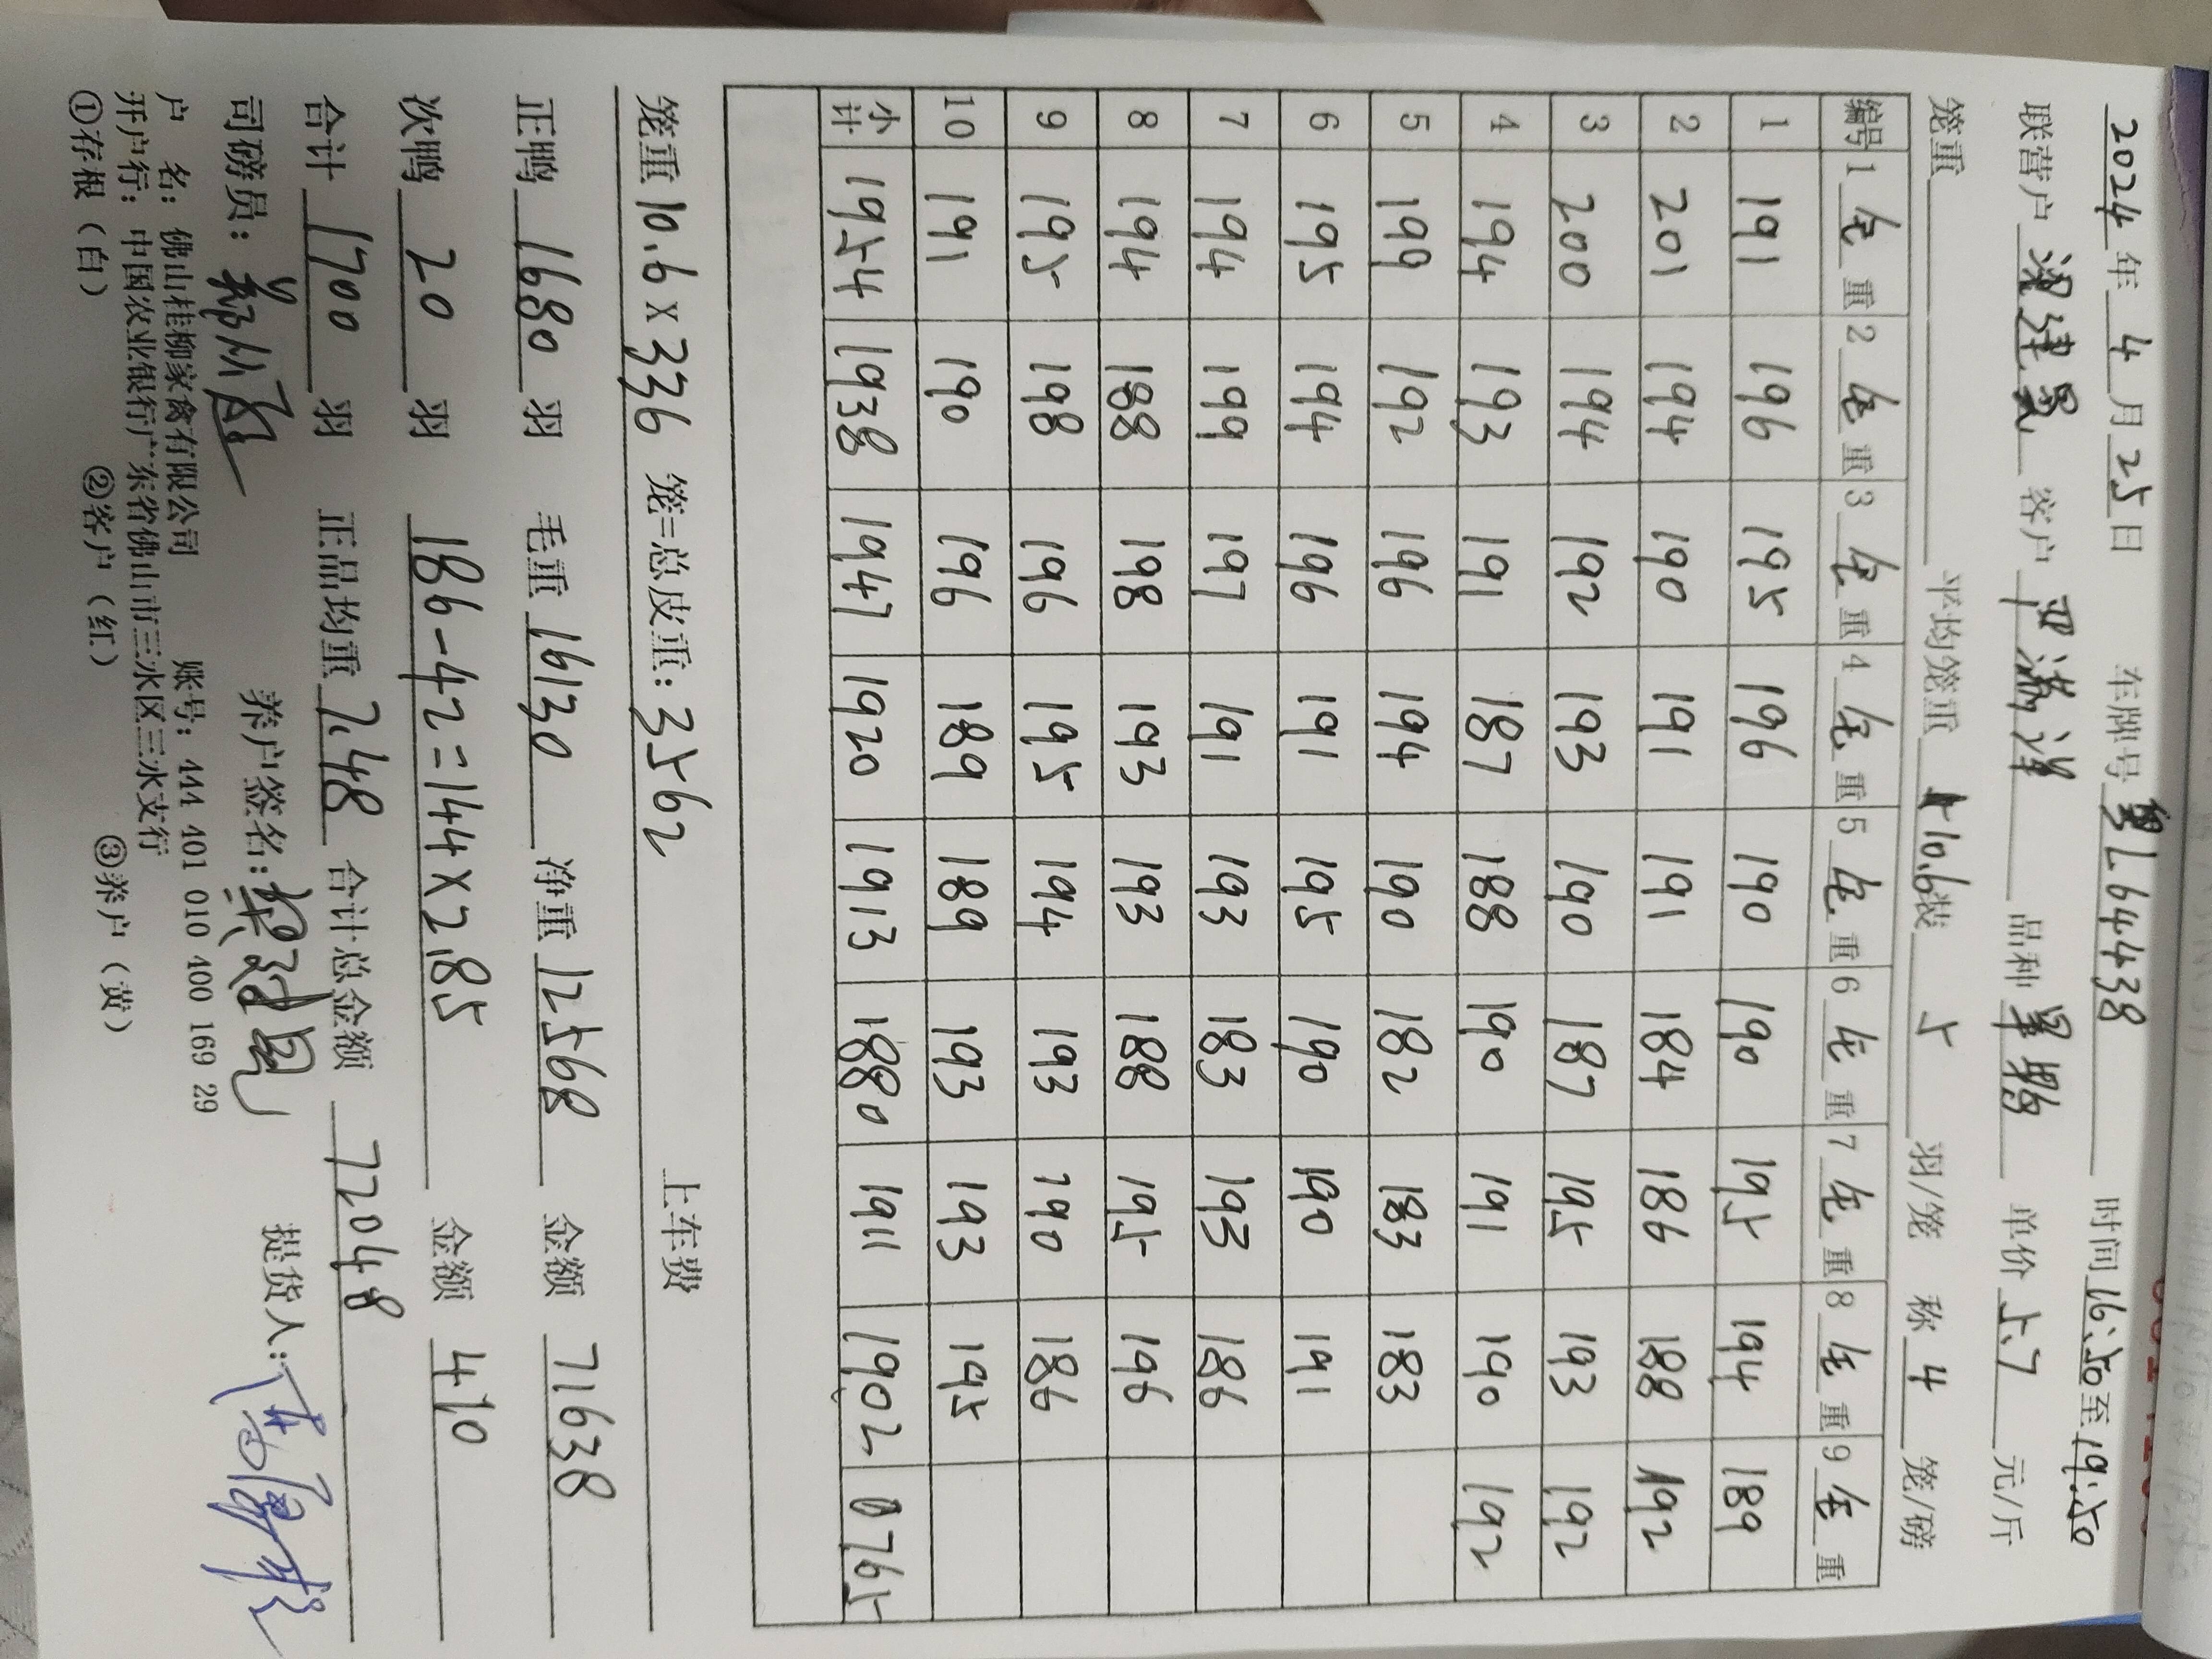 2024年4月25日 车牌号粤L64438 时间16:50至19:50
联营户梁建昆 客户 品种 单价5.7元/斤
笼重 平均笼重10.6装5羽/笼 称4笼/磅
编号 1毛重 2毛重 3毛重 4毛重 5毛重 6毛重 7毛重 8毛重 9毛重
1 191 196 195 196 190 190 195 194 189
2 201 194 190 191 191 184 186 188 192
3 200 194 192 193 190 187 195 193 192
4 194 193 191 187 188 190 191 190 192
5 199 192 196 194 190 182 183 183
6 195 194 196 191 195 190 190 191
7 194 199 197 191 193 183 193 186
8 194 188 198 193 193 188 195 196
9 195 198 196 195 194 193 190 186
10 191 190 196 189 189 193 193 195
小计 1954 1938 1947 1920 1913 1880 1911 1902 0765
笼重10.6×336笼=总皮重:3562 上车费
正鸭1680羽 毛重16130 净重12568 金额71638
次鸭20羽 186-42=144×2.85 金额410
合计1700羽 正品均重7.48 合计总金额72048
司磅员: 养户签名:梁建昆 提货人:
户 名:佛山桂柳家禽有限公司 账号:444 401 010 400 169 29
开户行:中国农业银行广东省佛山市三水区三水支行
①存根(白) ②客户(红) ③养户(黄)